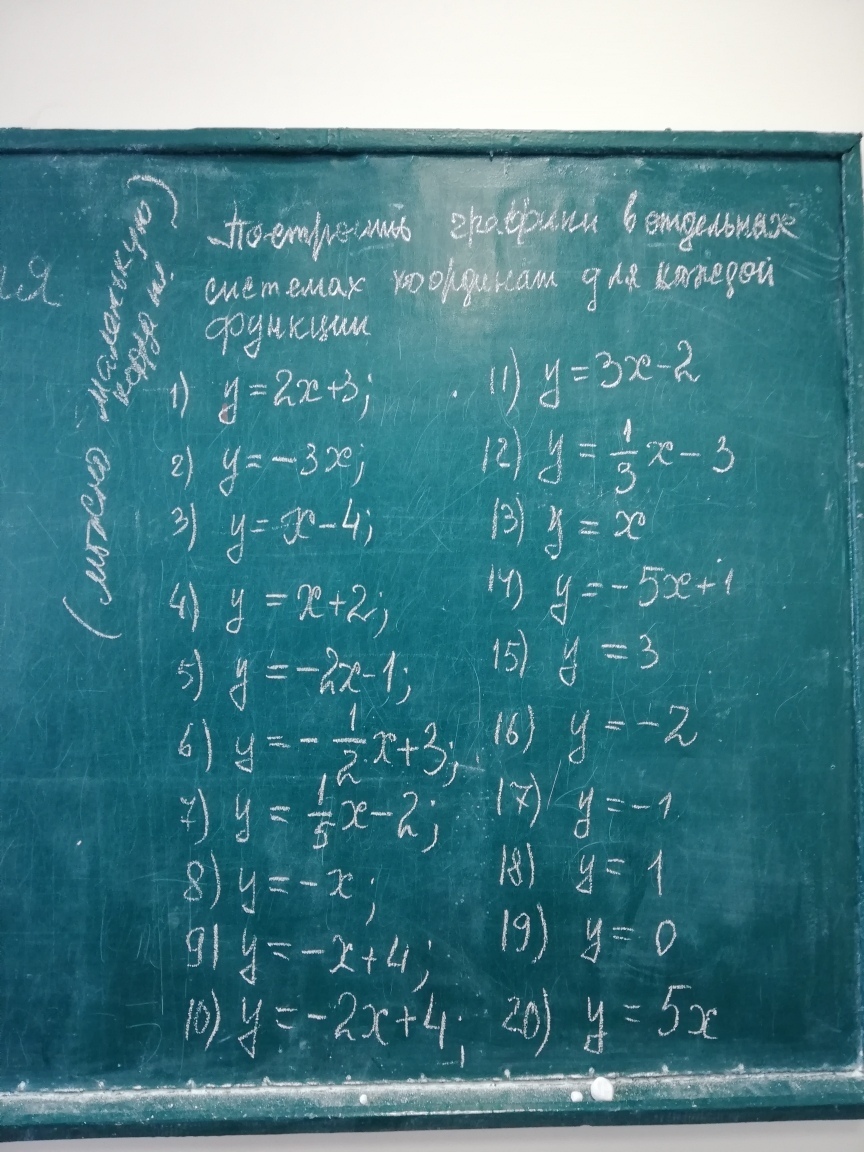 ия
(можно маленькую
коорд. пл.)
Построить графики в отдельных
системах координат для каждой
функции
1) y=2x+3;
2) y=-3x;
3) y=x-4;
4) y=x+2;
5) y=-2x-1;
6) y=-1/2x+3;
7) y=1/5x-2;
8) y=-x;
9) y=-x+4;
10) y=-2x+4;
11) y=3x-2
12) y=1/3x-3
13) y=x
14) y=-5x+1
15) y=3
16) y=-2
17) y=-1
18) y=1
19) y=0
20) y=5x